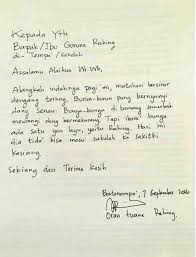 Kepada Yth
Bapak/Ibu Guruna Rahing
di- Tempa'/sakolah
Assalamu Alaikun Wr Wb,
Alangkah indahnya pagi ini, matahari bersinar
dengang terang, Burun-burun pung bernyanyi
dang senang. Bunga-bunga di tamang semerbak
mewangi dang bermekarang. Tapi ibara' bunga
ada satu yang layu, yaitu Rahing. Hari ini
dia tida' bisa masu' sekolah ka sakitki
kasiang.
Sekiang dang Terima Kasih
Bontonompo', 7 September 2016
Oran tuana Rahing.